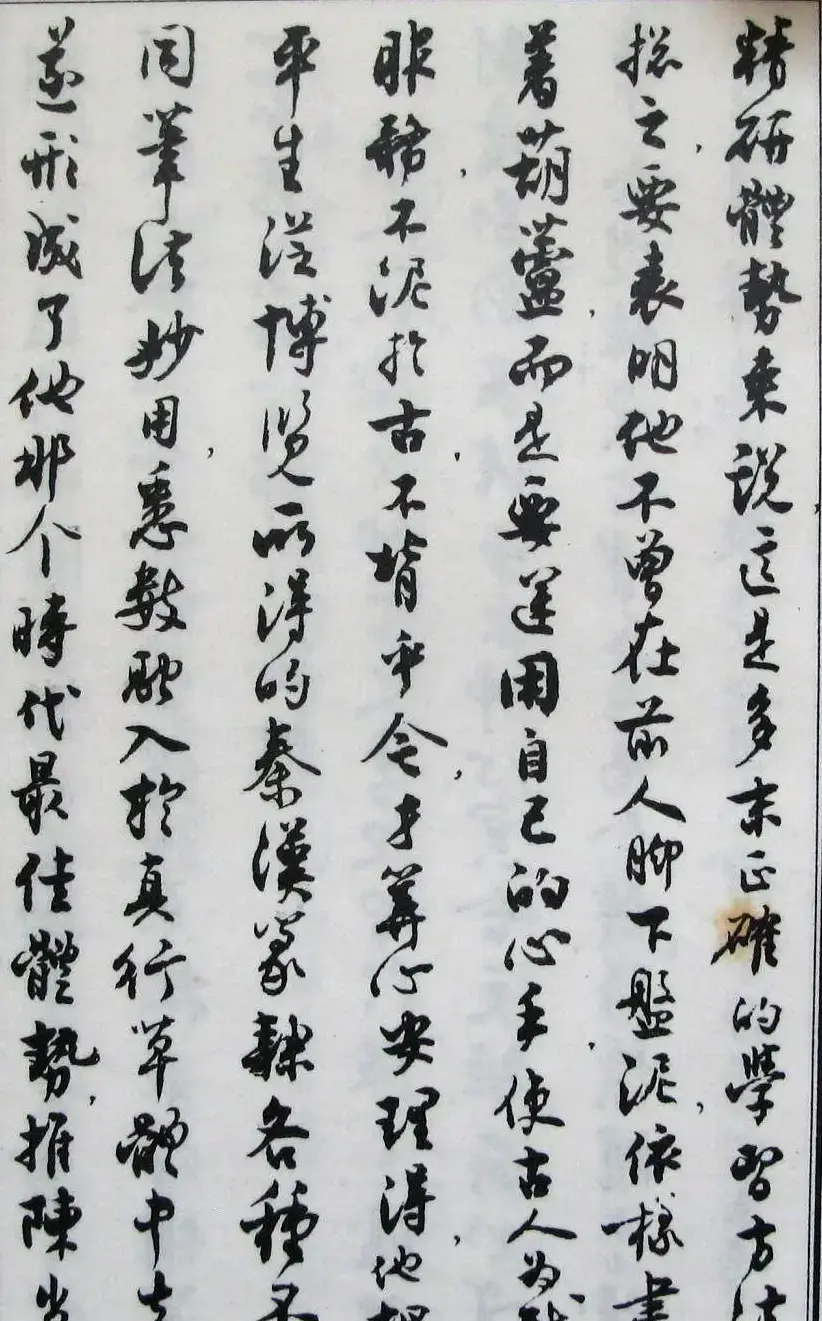 精研體勢來說，這是多末正確的學習方法
揔之，要表明他不曾在前人脚下盤泥，依樣畫
著葫蘆，而是要運用自己的心手，使古人為我
服務，不泥於古，不背乎今，才算心安理得，他把
平生從博覽所得的秦漢篆隸各種不
同筆法妙用，悉數融入於真行草體中去
遂形成了他那个時代最佳體勢，推陳出